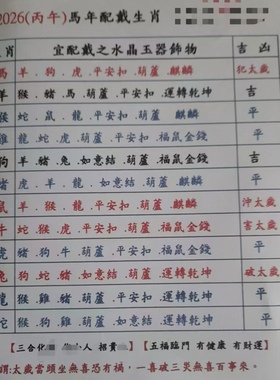 2026(丙午)馬年配戴生肖
肖 宜配戴之水晶玉器飾物 吉 凶
馬 羊．狗．虎．平安扣．葫蘆．麒麟 犯太歲
羊 猴．豬．馬．兔．葫蘆．運轉乾坤 吉
猴 蛇．鼠．龍．平安扣．葫蘆．麒麟 平
雞 龍．蛇．虎．葫蘆．平安扣．福鼠金錢 平
狗 羊．豬．兔．如意結．葫蘆．平安扣 吉
豬 虎．羊．龍．如意結．葫蘆．麒麟 平
鼠 羊．猴．龍．葫蘆．平安扣．麒麟 沖太歲
牛 蛇．猴．鼠．葫蘆．平安扣．運轉乾坤 害太歲
虎 豬．狗．牛．葫蘆．平安扣．福鼠金錢 平
兔 狗．蛇．豬．如意結．葫蘆．運轉乾坤 破太歲
龍 猴．雞．豬．葫蘆．如意結．平安扣 平
蛇 猴．雞．豬．如意結．葫蘆．福鼠金錢 平
【三合化 小人 招貴 】【五福臨門 有健康 有財運】
謂:太歲當頭坐無喜恐有禍，一喜破三災無喜百事來。